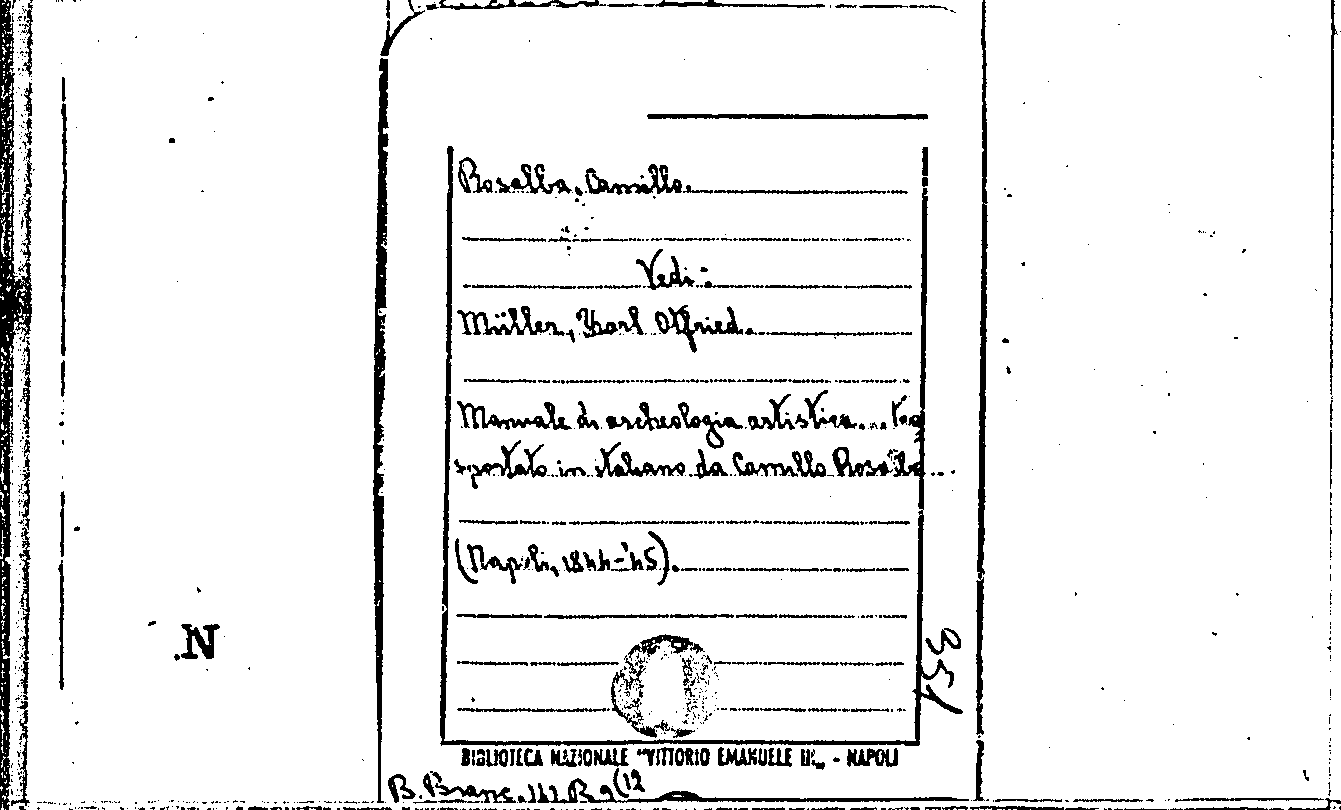 Rosalba, Camillo.
Vedi:
Müller, Karl Otfried.
Manuale di archeologia artistica... tra
sportato in italiano da Camillo Rosalba...
(Napoli, 1844-'45).
N.
351
BIBLIOTECA NAZIONALE "VITTORIO EMANUELE III„ - NAPOLI
B. Branc.